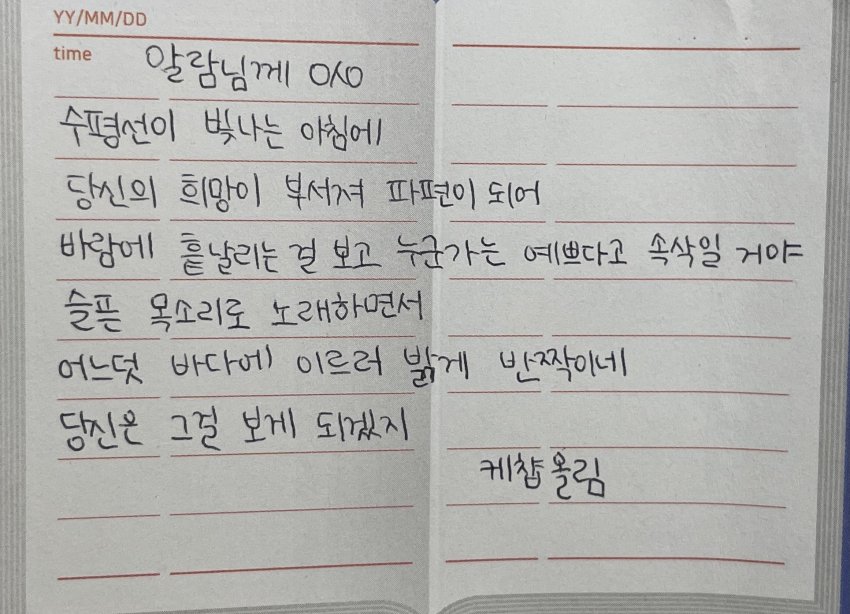 YY/MM/DD
time
알람님께 OSO
수평선이 빛나는 아침에
당신의 희망이 부서져 파편이 되어
바람에 흩날리는 걸 보고 누군가는 예쁘다고 속삭일 거야
슬픈 목소리로 노래하면서
어느덧 바다에 이르러 밝게 반짝이네
당신은 그걸 보게 되겠지
케챱 올림